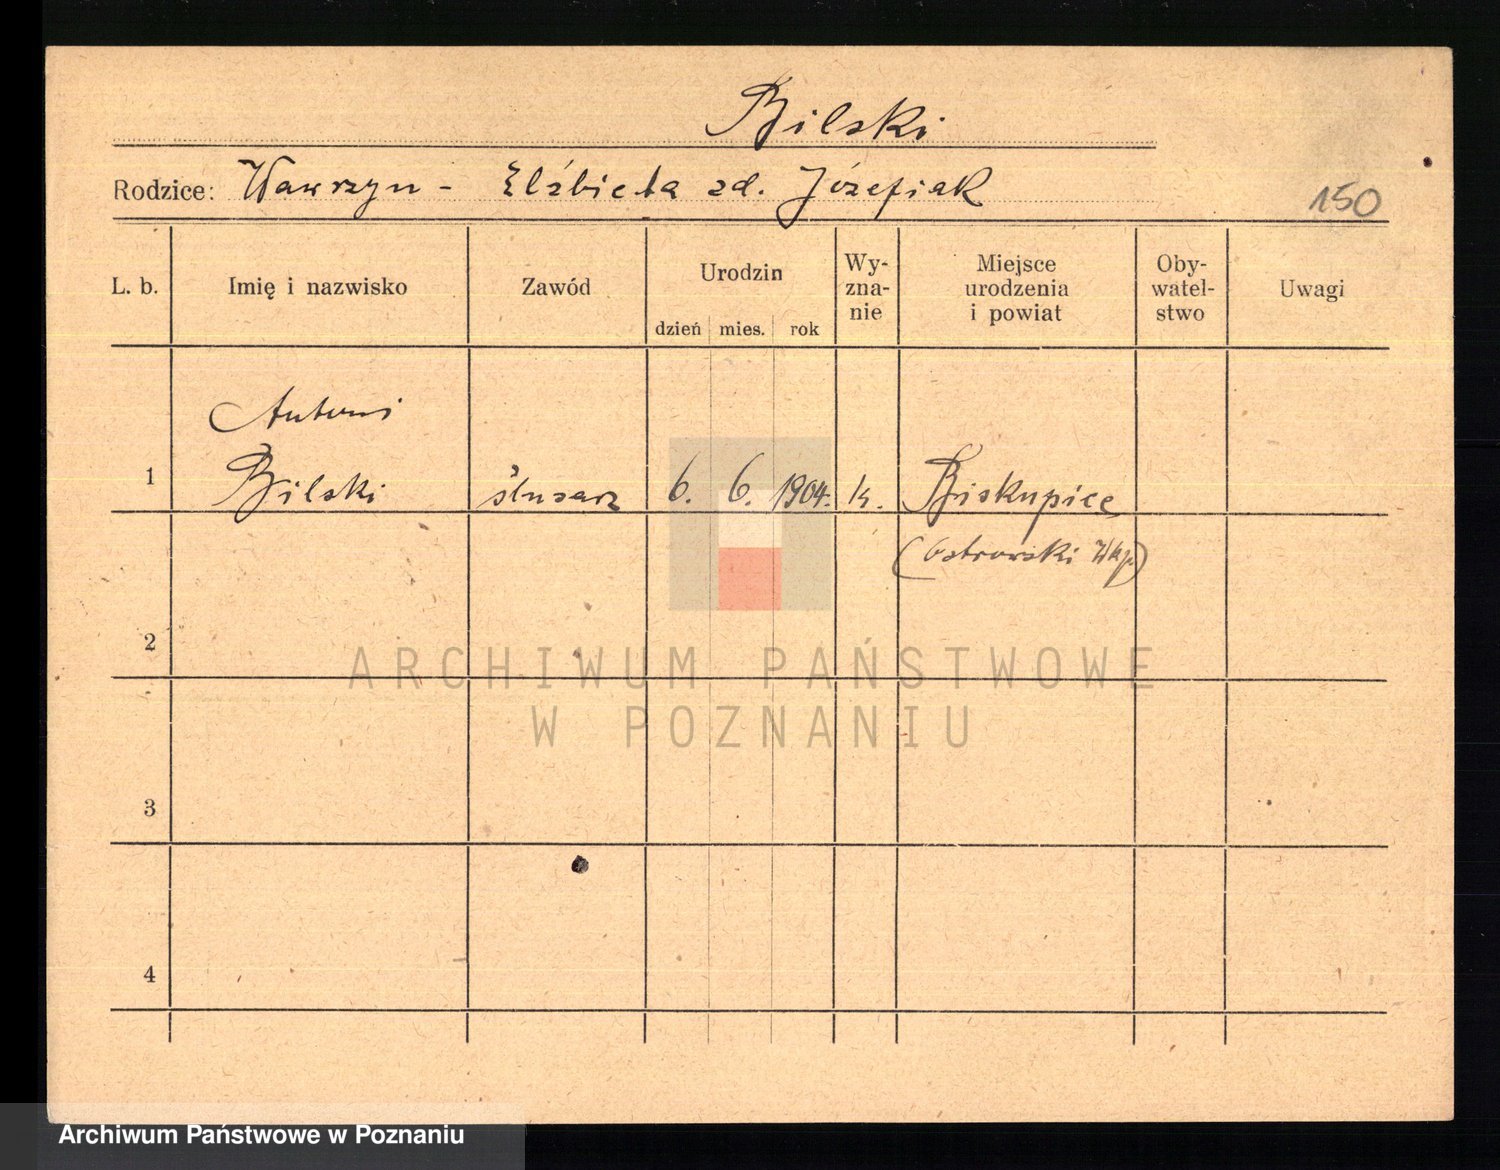 Bilski
Rodzice: Wawrzyn - Elżbieta zd. Józefiak
150
L. b.
Imię i nazwisko
Zawód
Urodzin
dzień mies. rok
Wy-
zna-
nie
Miejsce
urodzenia
i powiat
Oby-
watel-
stwo
Uwagi
Antoni
1 Bilski ślusarz 6. 6. 1904. k. Biskupice
(Ostrowski Wkp)
2
ARCHIWUM PAŃSTWOWE
W POZNANIU
3
4
Archiwum Państwowe w Poznaniu